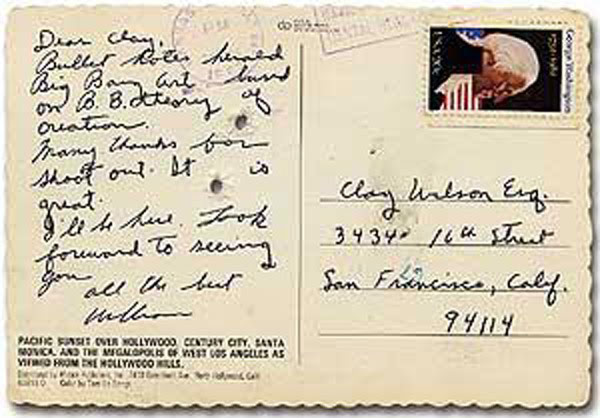 Dear Clay,
Bullet holes herald
Big Bang art based
on B.B. theory of
creation.
Many thanks for
shoot out. It is
great.
I'll be here. Look
forward to seeing
you
all the best
William
PACIFIC SUNSET OVER HOLLYWOOD, CENTURY CITY, SANTA
MONICA, AND THE MEGALOPOLIS OF WEST LOS ANGELES AS
VIEWED FROM THE HOLLYWOOD HILLS.
George Washington
1732-1982
USA 20c
Clay Wilson Esq.
3434 16th Street
San Francisco, Calif.
94114